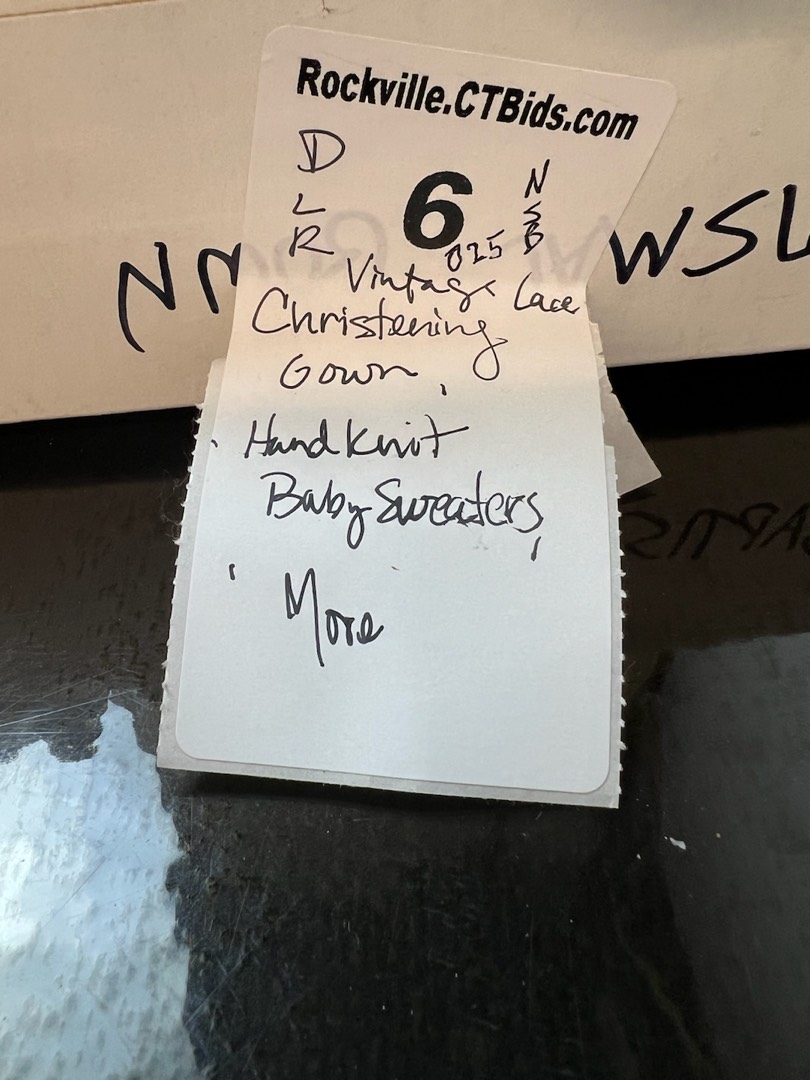 Rockville.CTBids.com
D
L
R
6
025
N
S
B
Vintage Lace
Christening
Gown,
Hand Knit
Baby Sweaters,
More
NM
WSL